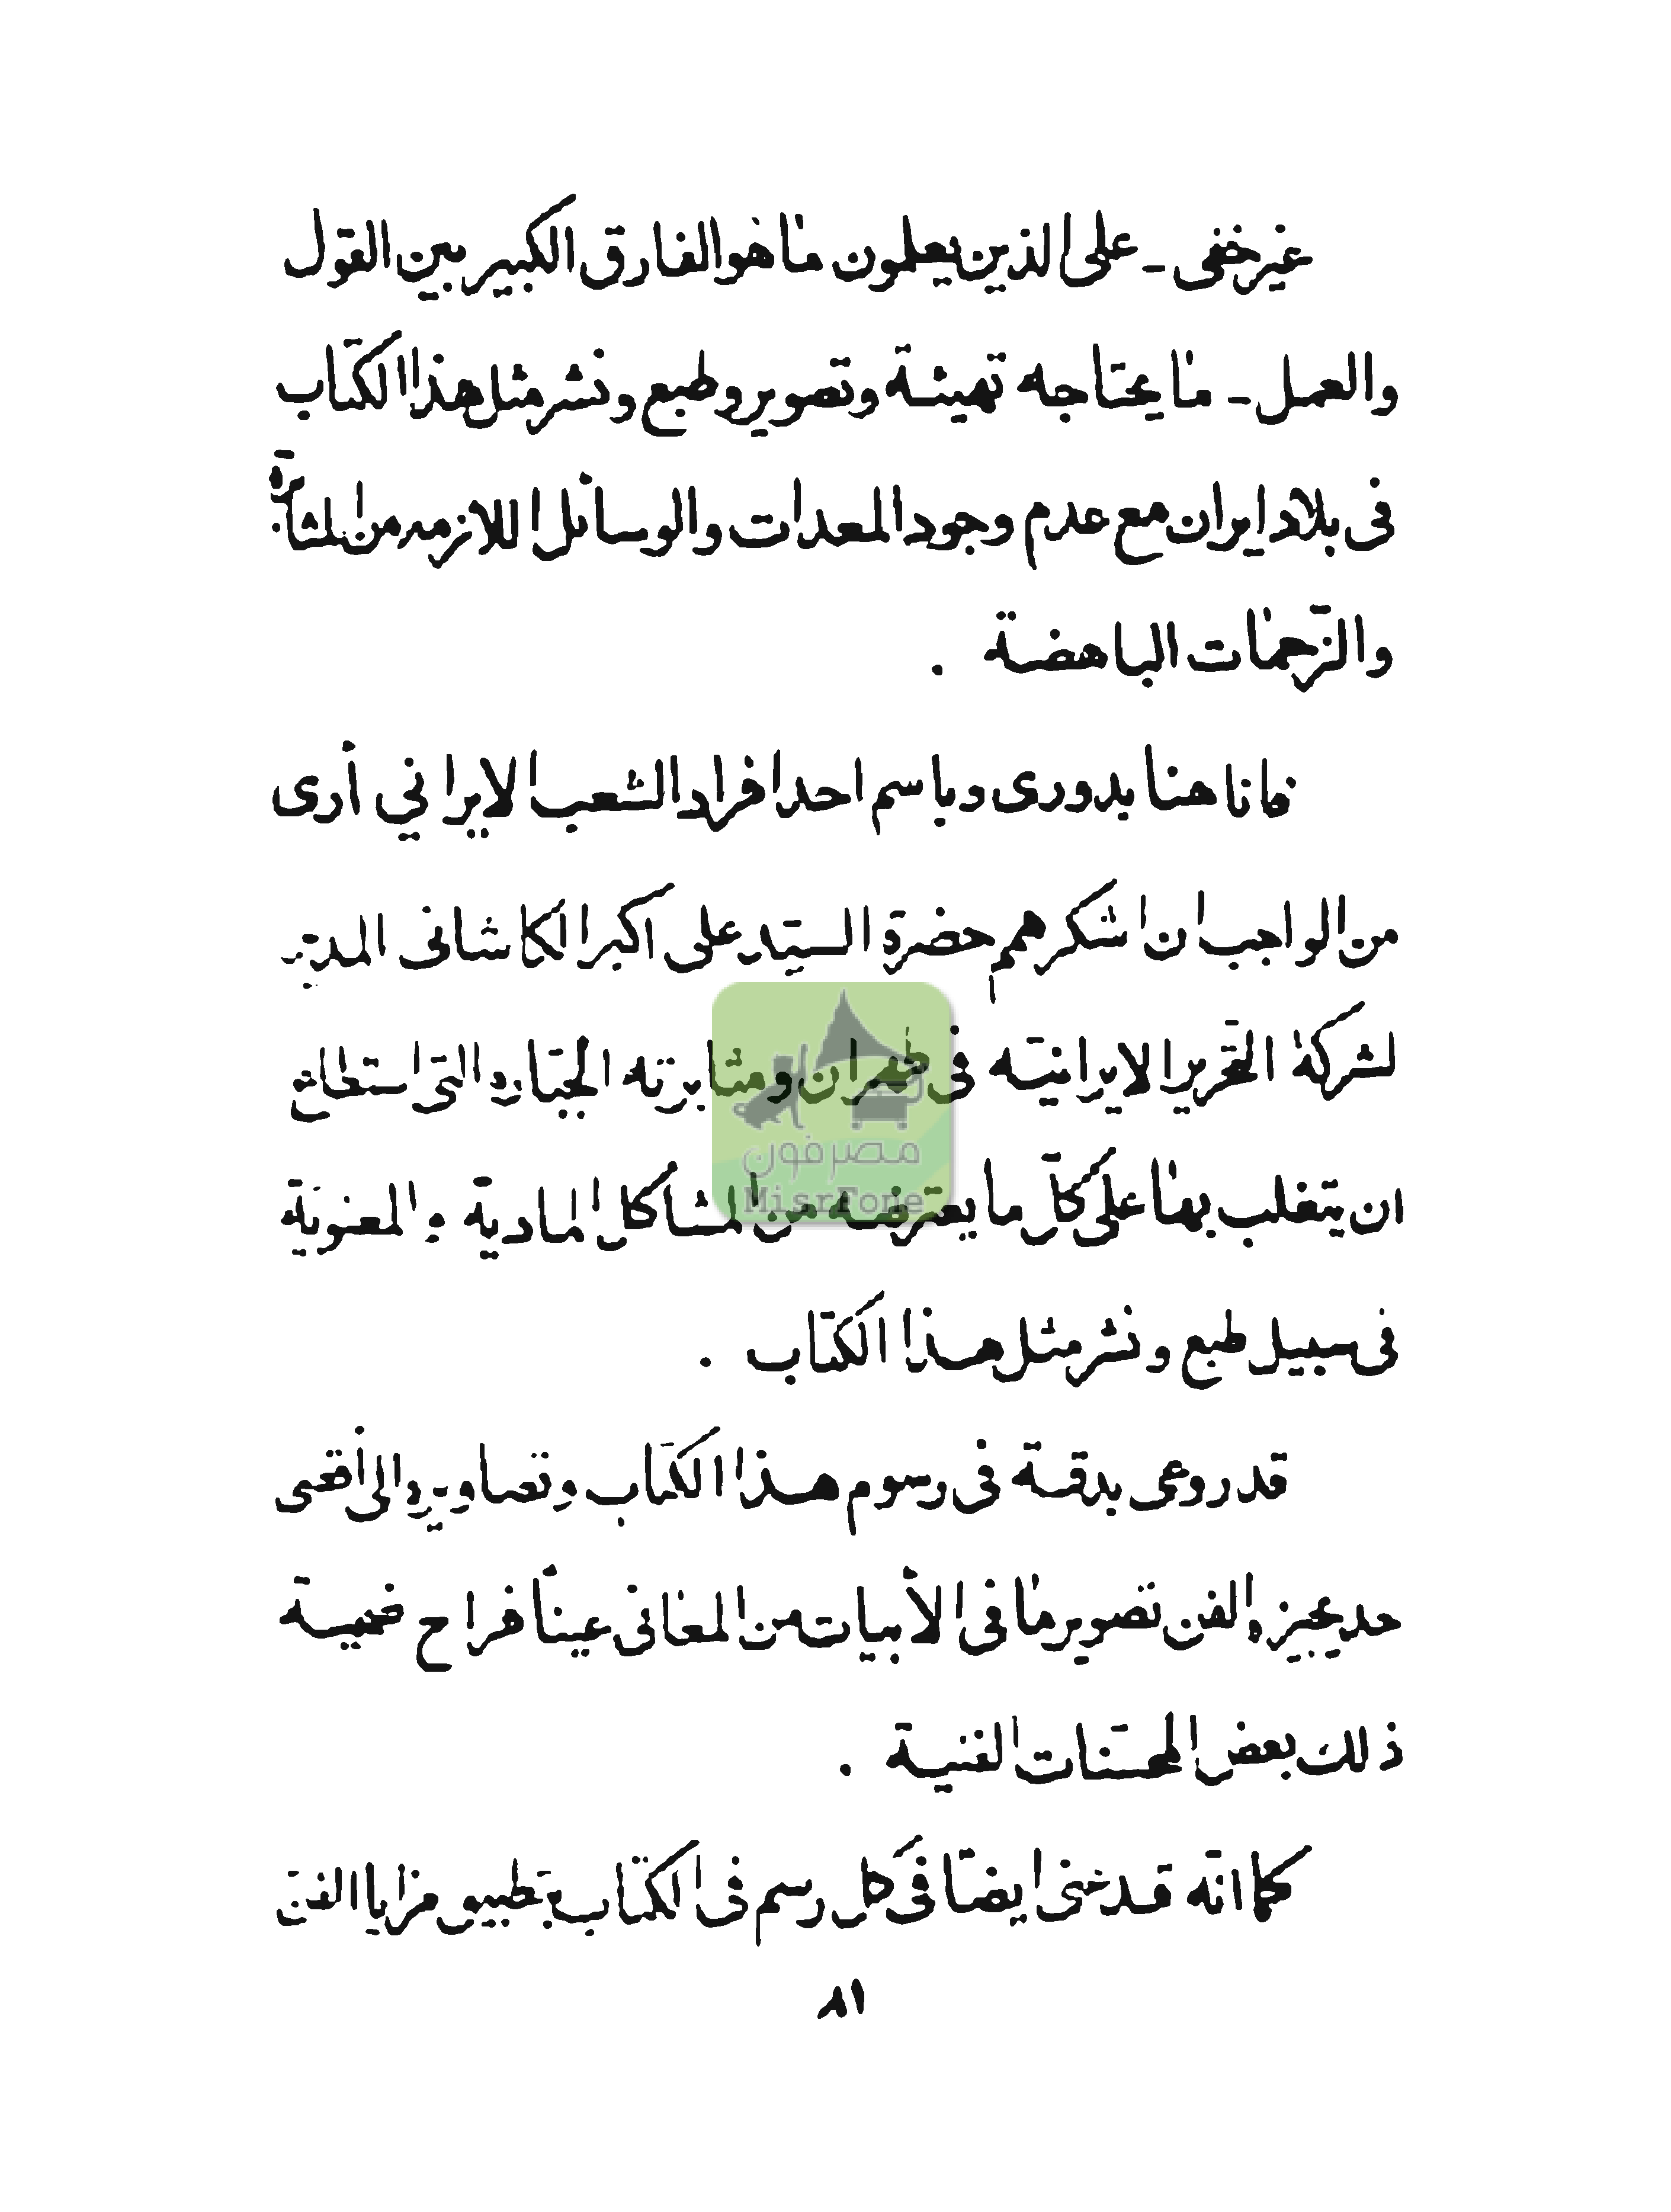 غير خفى - على الذين يعلمون ما هو الفارق الكبير بين القول
والعمل - ما يحتاجه تهيئة وتصوير وطبع ونشر مثل هذا الكتاب
فى بلاد ايران مع عدم وجود المعدات والوسائل اللازمه من
والزحمات الباهضة .
فانا هنا بدورى وباسم احد افراد الشعب الايرانى أرى
من الواجب ان اشكر هم حضرة السيد على اكبر الكاشانى المدير
لشركة التحرير الايرانيّه فى طهران ومثابرته الجبّاره التى استطاع
ان يتغلب بها على كلّ ما يعترضه من المشاكل المادية و المعنوية
فى سبيل طبع و نشر مثل هذا الكتاب .
قد روعى بدقة فى رسوم هذا الكتاب وتصاويره الى أقصى
حد يجيزه الفن تصوير ما فى الأبيات من المعانى عيناً فراح ضحيّة
ذلك بعض المحسّنات الفنية .
كما انّه قد ايضاً فى كل رسم فى الكتاب بتطبيق مزايا الفن
٨١
مصرفون
MisrFone